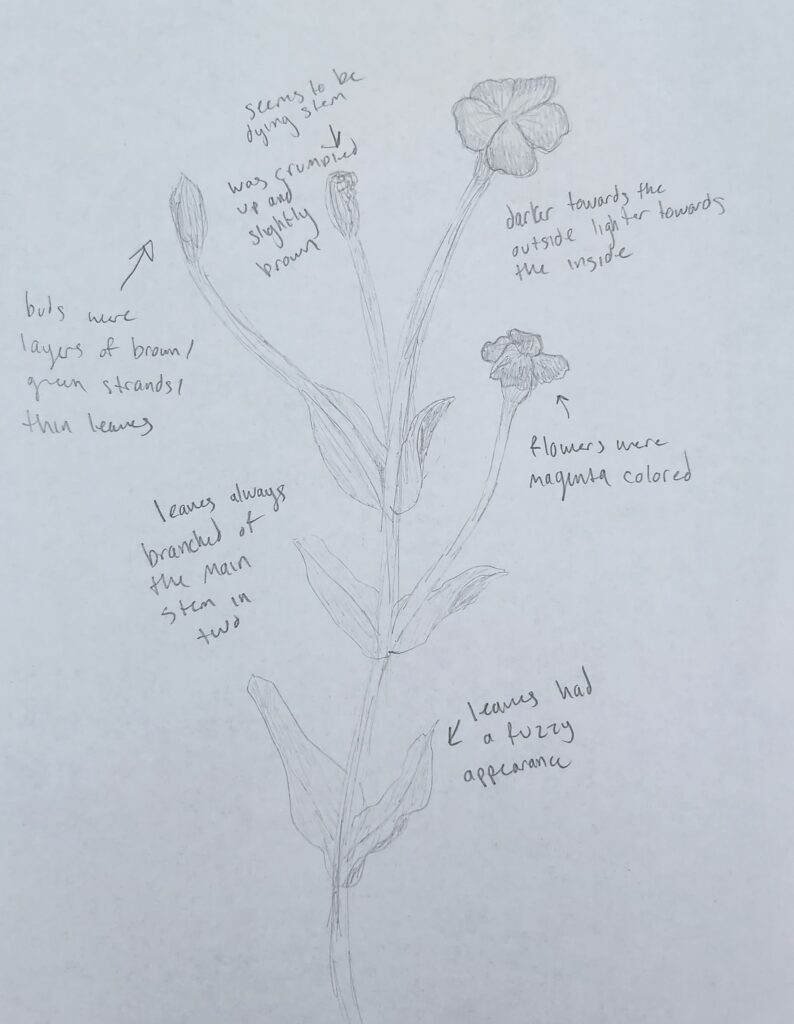 seems to be
dying stem
was crumpled
up and
slightly
brown
darker towards the
outside lighter towards
the inside
buds were
layers of brown/
green strands/
thin leaves
flowers were
magenta colored
leaves always
branched of
the main
stem in
two
leaves had
a fuzzy
appearance